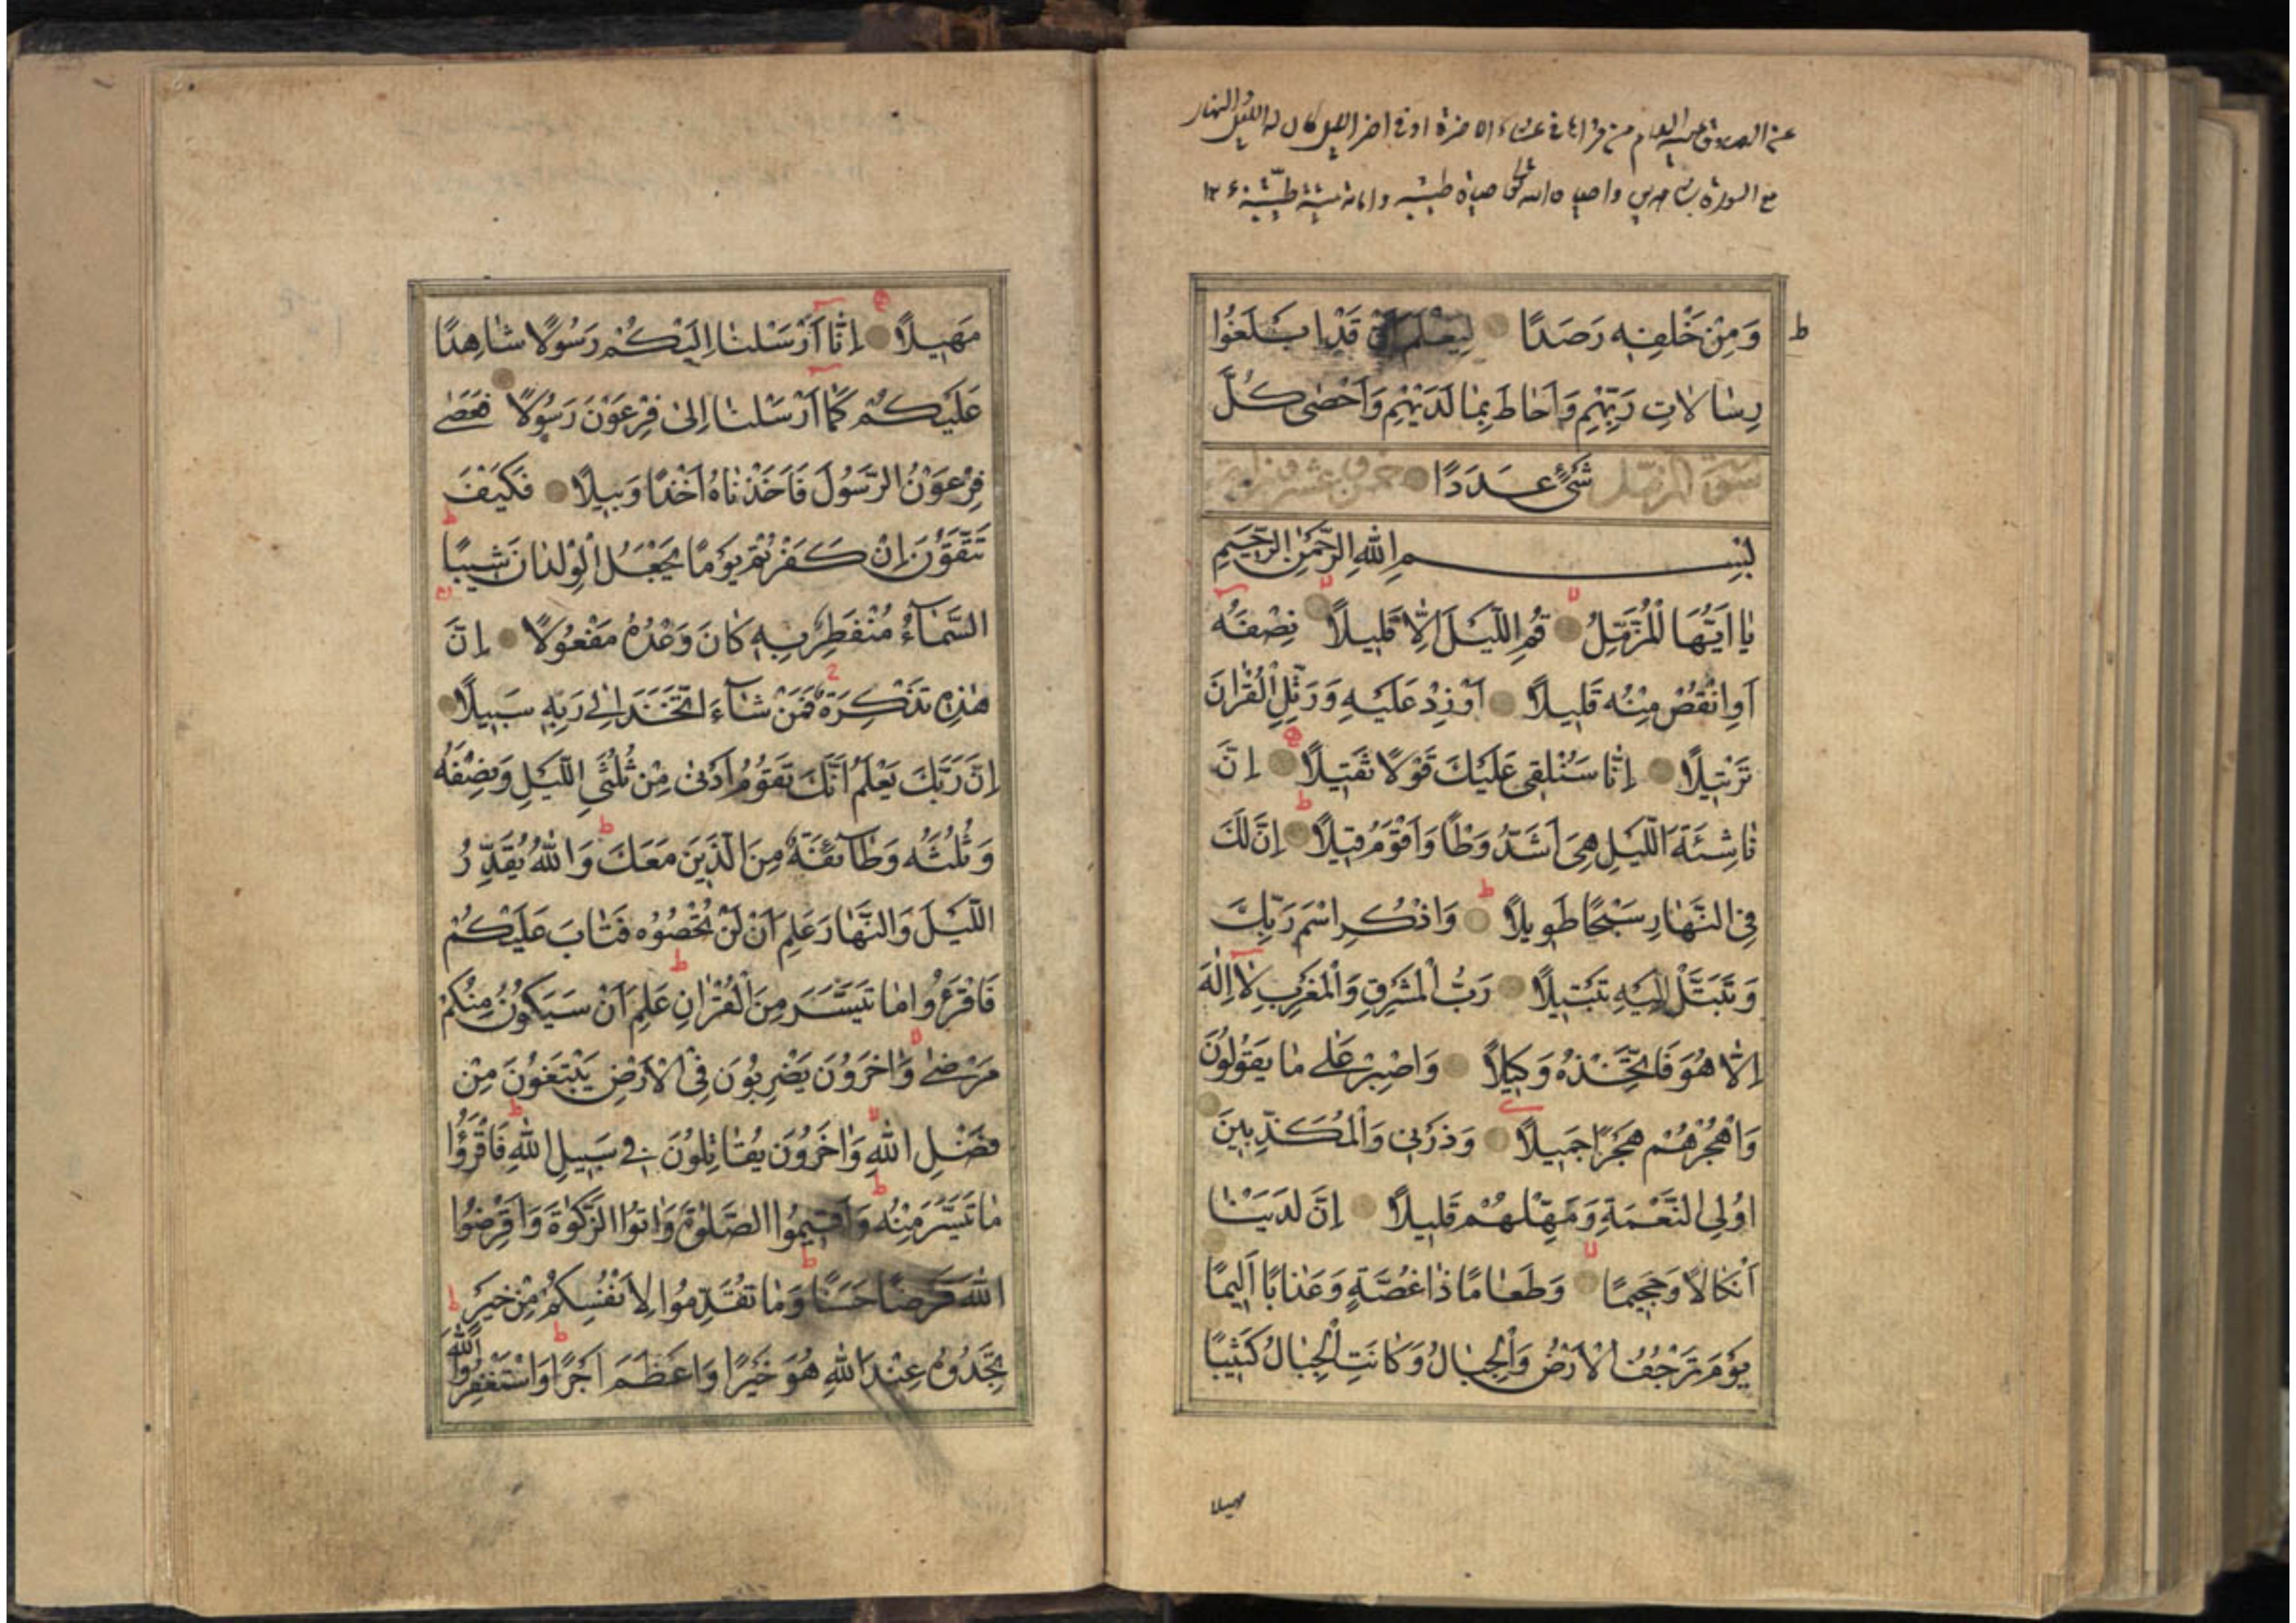 عن الصادق عليه السلام من قراها في عشاء الاخرة او في اخر الليل كان له الليل والنهار
مع السورة شاهدين واحياه الله تعالى حياة طيبة واماته ميتة طيبة ١٢
ط
وَمِنْ خَلْفِهِ رَصَدًا لِيَعْلَمَ اَنْ قَدْ اَبْلَغُوا
رِسَالَاتِ رَبِّهِمْ وَاَحَاطَ بِمَا لَدَيْهِمْ وَاَحْصٰى كُلَّ
سورة المزمل شَىْءٍ عَدَدًا عشرون
بِسْمِ اللهِ الرَّحْمٰنِ الرَّحِيمِ
يَا اَيُّهَا الْمُزَّمِّلُ قُمِ اللَّيْلَ اِلَّا قَلِيلًا نِصْفَهُ
اَوِ انْقُصْ مِنْهُ قَلِيلًا اَوْ زِدْ عَلَيْهِ وَرَتِّلِ الْقُرْاٰنَ
تَرْتِيلًا اِنَّا سَنُلْقِى عَلَيْكَ قَوْلًا ثَقِيلًا اِنَّ
نَاشِئَةَ اللَّيْلِ هِىَ اَشَدُّ وَطْاً وَاَقْوَمُ قِيلًا اِنَّ لَكَ
فِى النَّهَارِ سَبْحًا طَوِيلًا وَاذْكُرِ اسْمَ رَبِّكَ
وَتَبَتَّلْ اِلَيْهِ تَبْتِيلًا رَبُّ الْمَشْرِقِ وَالْمَغْرِبِ لَا اِلٰهَ
اِلَّا هُوَ فَاتَّخِذْهُ وَكِيلًا وَاصْبِرْ عَلٰى مَا يَقُولُونَ
وَاهْجُرْهُمْ هَجْرًا جَمِيلًا وَذَرْنِى وَالْمُكَذِّبِينَ
اُولِى النَّعْمَةِ وَمَهِّلْهُمْ قَلِيلًا اِنَّ لَدَيْنَا
اَنْكَالًا وَجَحِيمًا وَطَعَامًا ذَا غُصَّةٍ وَعَذَابًا اَلِيمًا
يَوْمَ تَرْجُفُ الْاَرْضُ وَالْجِبَالُ وَكَانَتِ الْجِبَالُ كَثِيبًا
مهيلا
مَهِيلًا اِنَّا اَرْسَلْنَا اِلَيْكُمْ رَسُولًا شَاهِدًا
عَلَيْكُمْ كَمَا اَرْسَلْنَا اِلٰى فِرْعَوْنَ رَسُولًا فَعَصٰى
فِرْعَوْنُ الرَّسُولَ فَاَخَذْنَاهُ اَخْذًا وَبِيلًا فَكَيْفَ
تَتَّقُونَ اِنْ كَفَرْتُمْ يَوْمًا يَجْعَلُ الْوِلْدَانَ شِيبًا
السَّمَاءُ مُنْفَطِرٌ بِهِ كَانَ وَعْدُهُ مَفْعُولًا اِنَّ
هٰذِهِ تَذْكِرَةٌ فَمَنْ شَاءَ اتَّخَذَ اِلٰى رَبِّهِ سَبِيلًا
اِنَّ رَبَّكَ يَعْلَمُ اَنَّكَ تَقُومُ اَدْنٰى مِنْ ثُلُثَىِ اللَّيْلِ وَنِصْفَهُ
وَثُلُثَهُ وَطَائِفَةٌ مِنَ الَّذِينَ مَعَكَ وَاللهُ يُقَدِّرُ
اللَّيْلَ وَالنَّهَارَ عَلِمَ اَنْ لَنْ تُحْصُوهُ فَتَابَ عَلَيْكُمْ
فَاقْرَءُوا مَا تَيَسَّرَ مِنَ الْقُرْاٰنِ عَلِمَ اَنْ سَيَكُونُ مِنْكُمْ
مَرْضٰى وَاٰخَرُونَ يَضْرِبُونَ فِى الْاَرْضِ يَبْتَغُونَ مِنْ
فَضْلِ اللهِ وَاٰخَرُونَ يُقَاتِلُونَ فِى سَبِيلِ اللهِ فَاقْرَؤُا
مَا تَيَسَّرَ مِنْهُ وَاَقِيمُوا الصَّلٰوةَ وَاٰتُوا الزَّكٰوةَ وَاَقْرِضُوا
اللهَ قَرْضًا حَسَنًا وَمَا تُقَدِّمُوا لِاَنْفُسِكُمْ مِنْ خَيْرٍ
تَجِدُوهُ عِنْدَ اللهِ هُوَ خَيْرًا وَاَعْظَمَ اَجْرًا وَاسْتَغْفِرُوا اللهَ